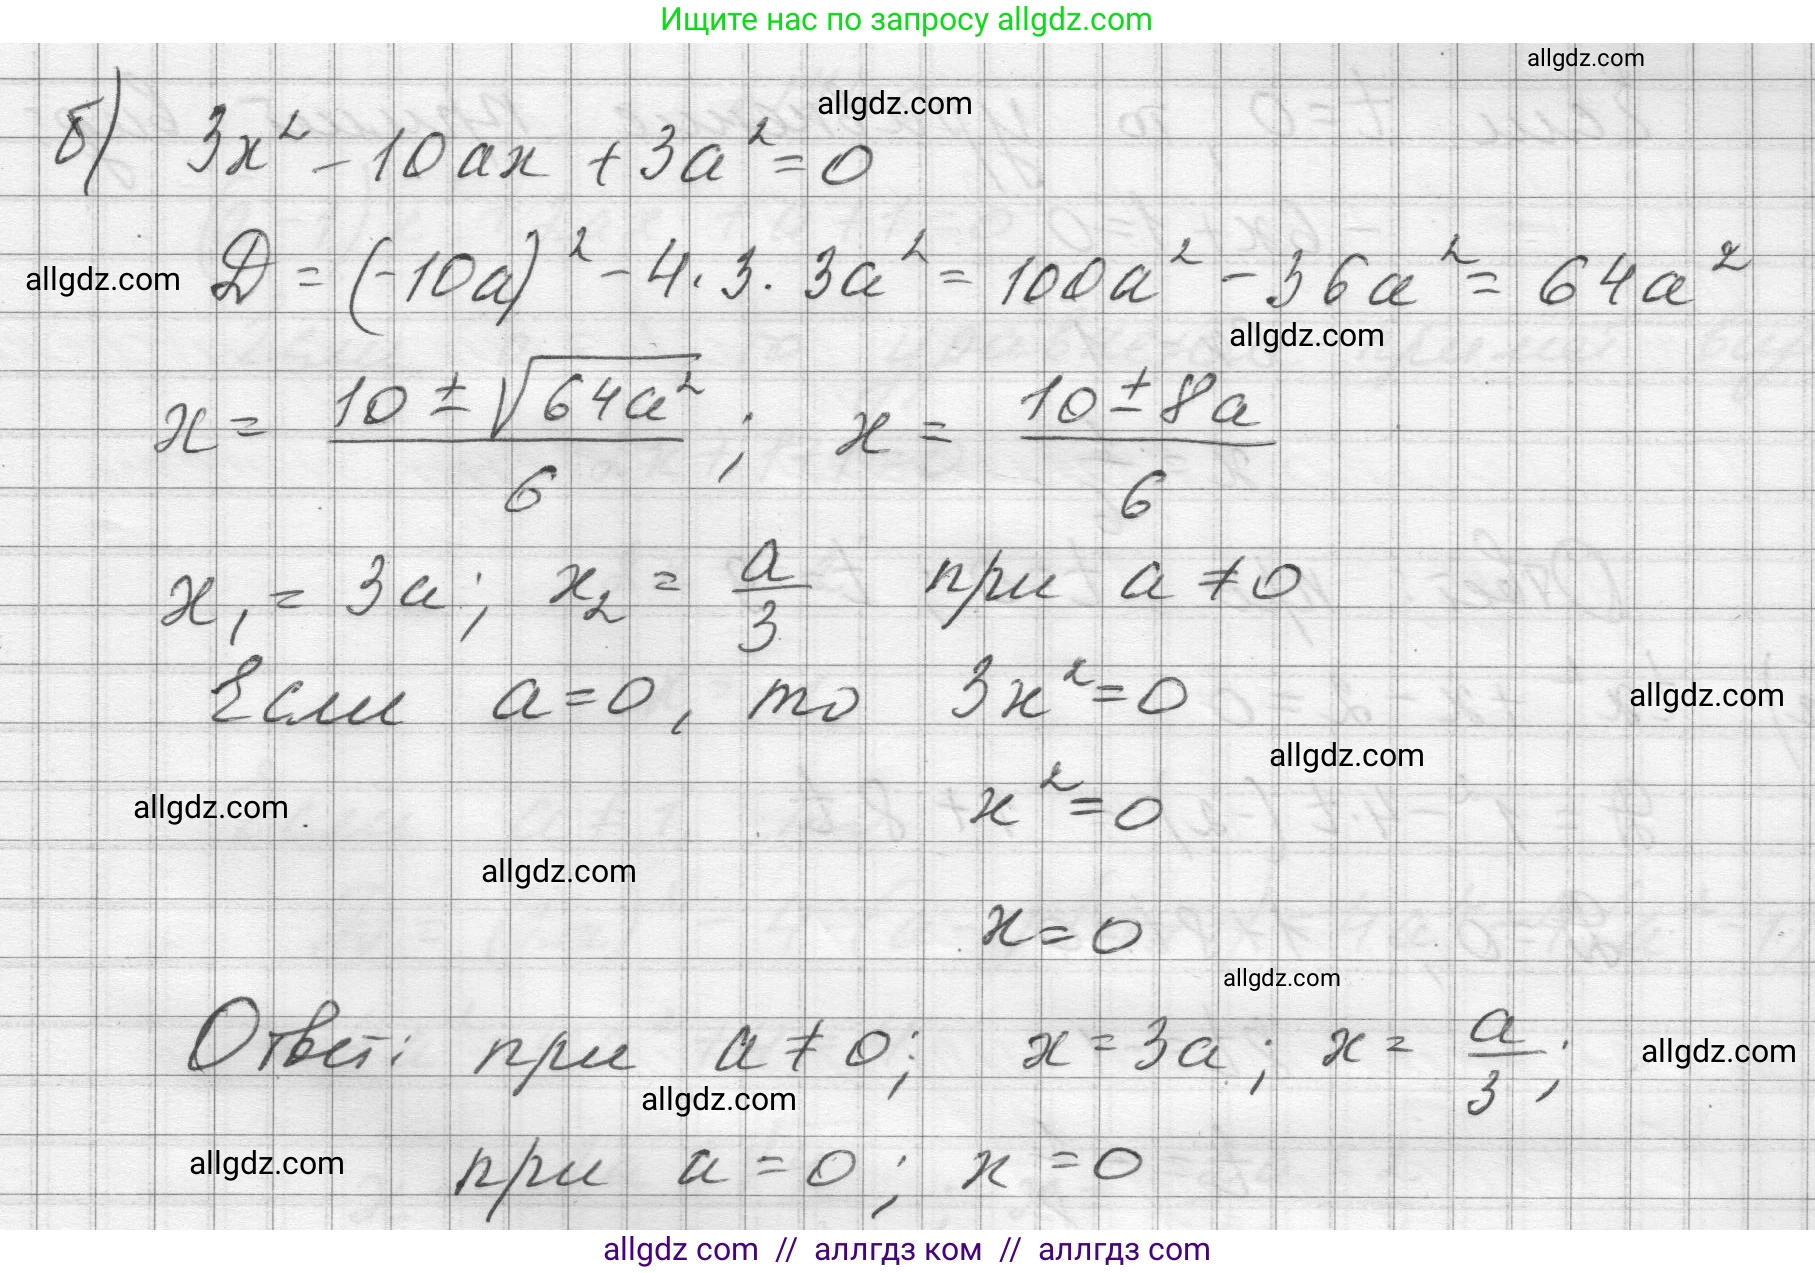 Ищите нас по запросу allgdz.com
allgdz.com
allgdz.com
б) 3x² - 10ax + 3a² = 0
allgdz.com
D = (-10a)² - 4·3·3a² = 100a² - 36a² = 64a²
allgdz.com
x = (10 ± √(64a²))/6 ; x = (10 ± 8a)/6
x₁ = 3a; x₂ = a/3 при a ≠ 0
Если a = 0, то 3x² = 0
allgdz.com
allgdz.com
x² = 0
allgdz.com
allgdz.com
x = 0
allgdz.com
Ответ: при a ≠ 0; x = 3a; x = a/3;
allgdz.com
allgdz.com
при a = 0; x = 0
allgdz.com
allgdz com // аллгдз ком // аллгдз com